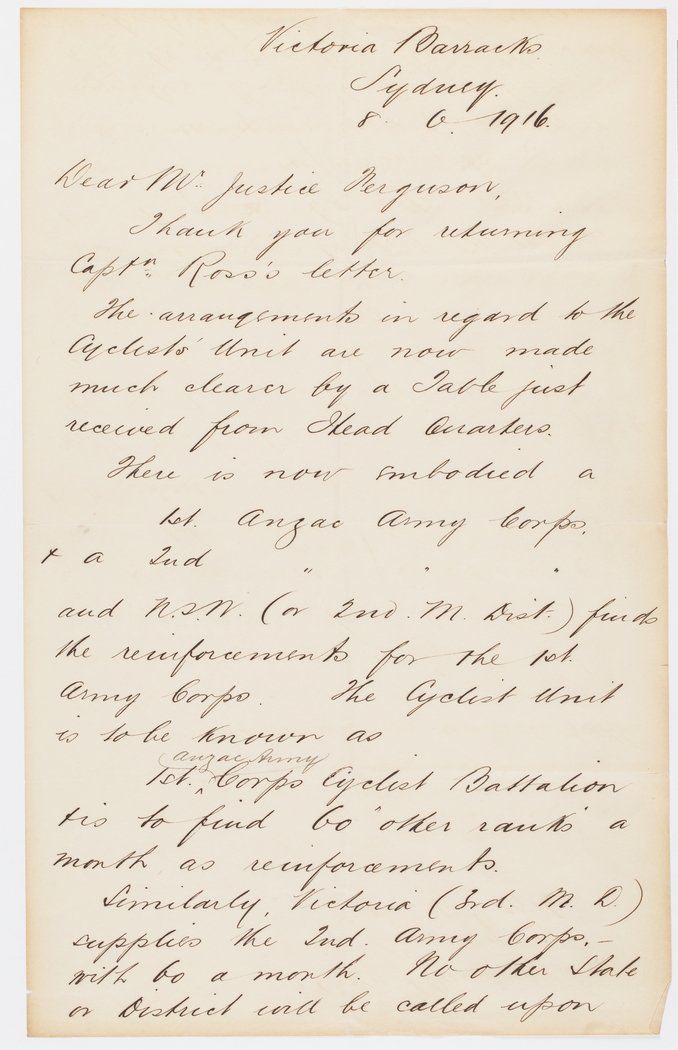 Victoria Barracks
Sydney.
8. 6. 1916.
Dear Mr. Justice Ferguson,
Thank you for returning
Captn. Ross's letter.
The arrangements in regard to the
Cyclists' Unit are now made
much clearer by a Table just
received from Head Quarters.
There is now embodied a
1st. Anzac Army Corps,
& a 2nd " " "
and N.S.W. (or 2nd. M. Dist.) finds
the reinforcements for the 1st.
Army Corps. The Cyclist Unit
is to be known as
(Anzac Army)
1st. ^ Corps Cyclist Battalion
& is to find 60 "other ranks" a
month as reinforcements.
Similarly, Victoria (3rd. M. D.)
supplies the 2nd. Army Corps, -
with 60 a month. No other State
or District will be called upon